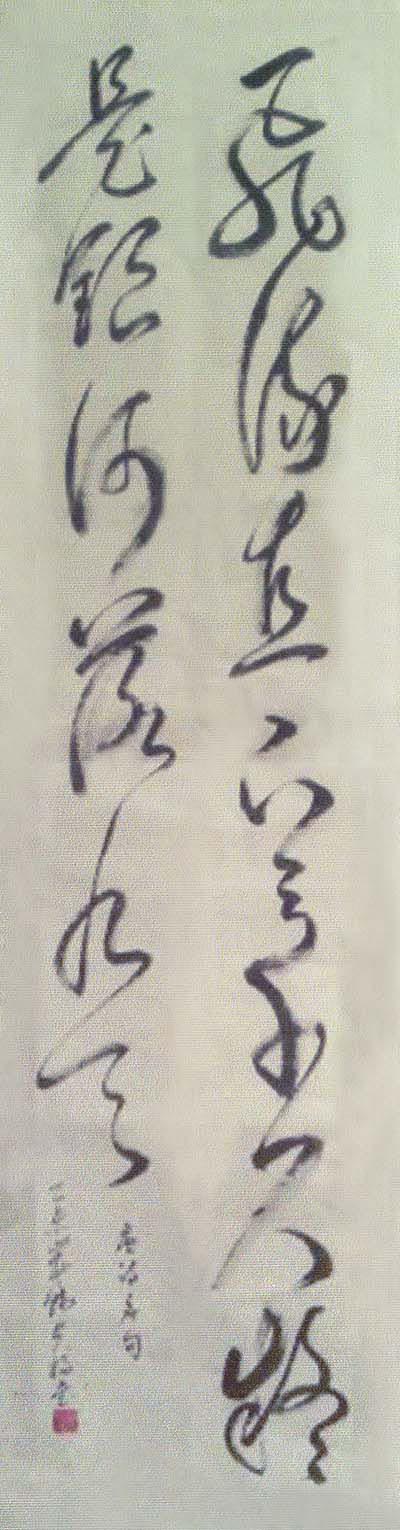 飛流直下三千尺疑
是銀河落九天
李白詩句